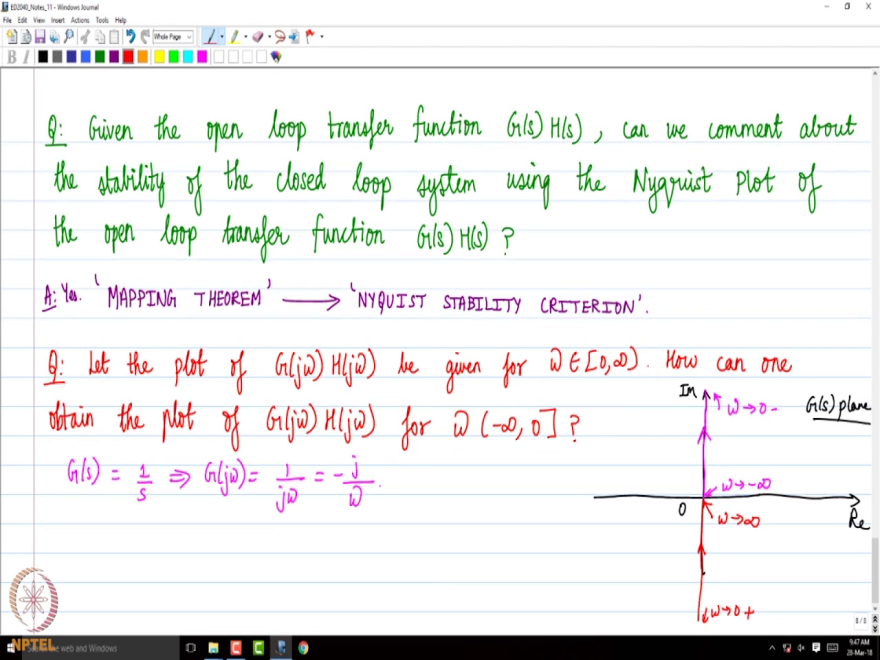 ED2040_Notes_11 - Windows Journal
File Edit View Insert Actions Tools Help
Whole Page
B I
Q: Given the open loop transfer function G(s) H(s), can we comment about
the stability of the closed loop system using the Nyquist Plot of
the open loop transfer function G(s) H(s) ?
A: Yes. 'MAPPING THEOREM' → 'NYQUIST STABILITY CRITERION'.
Q: Let the plot of G(jω) H(jω) be given for ω ∈ [0,∞). How can one
obtain the plot of G(jω) H(jω) for ω (-∞, 0] ?
G(s) = 1/s ⇒ G(jω) = 1/jω = -j/ω.
Im
ω→0-
G(s) plane
ω→-∞
0
ω→∞
Re
ω→0+
8 / 8
NPTEL
the web and Windows
9:47 AM
28-Mar-18